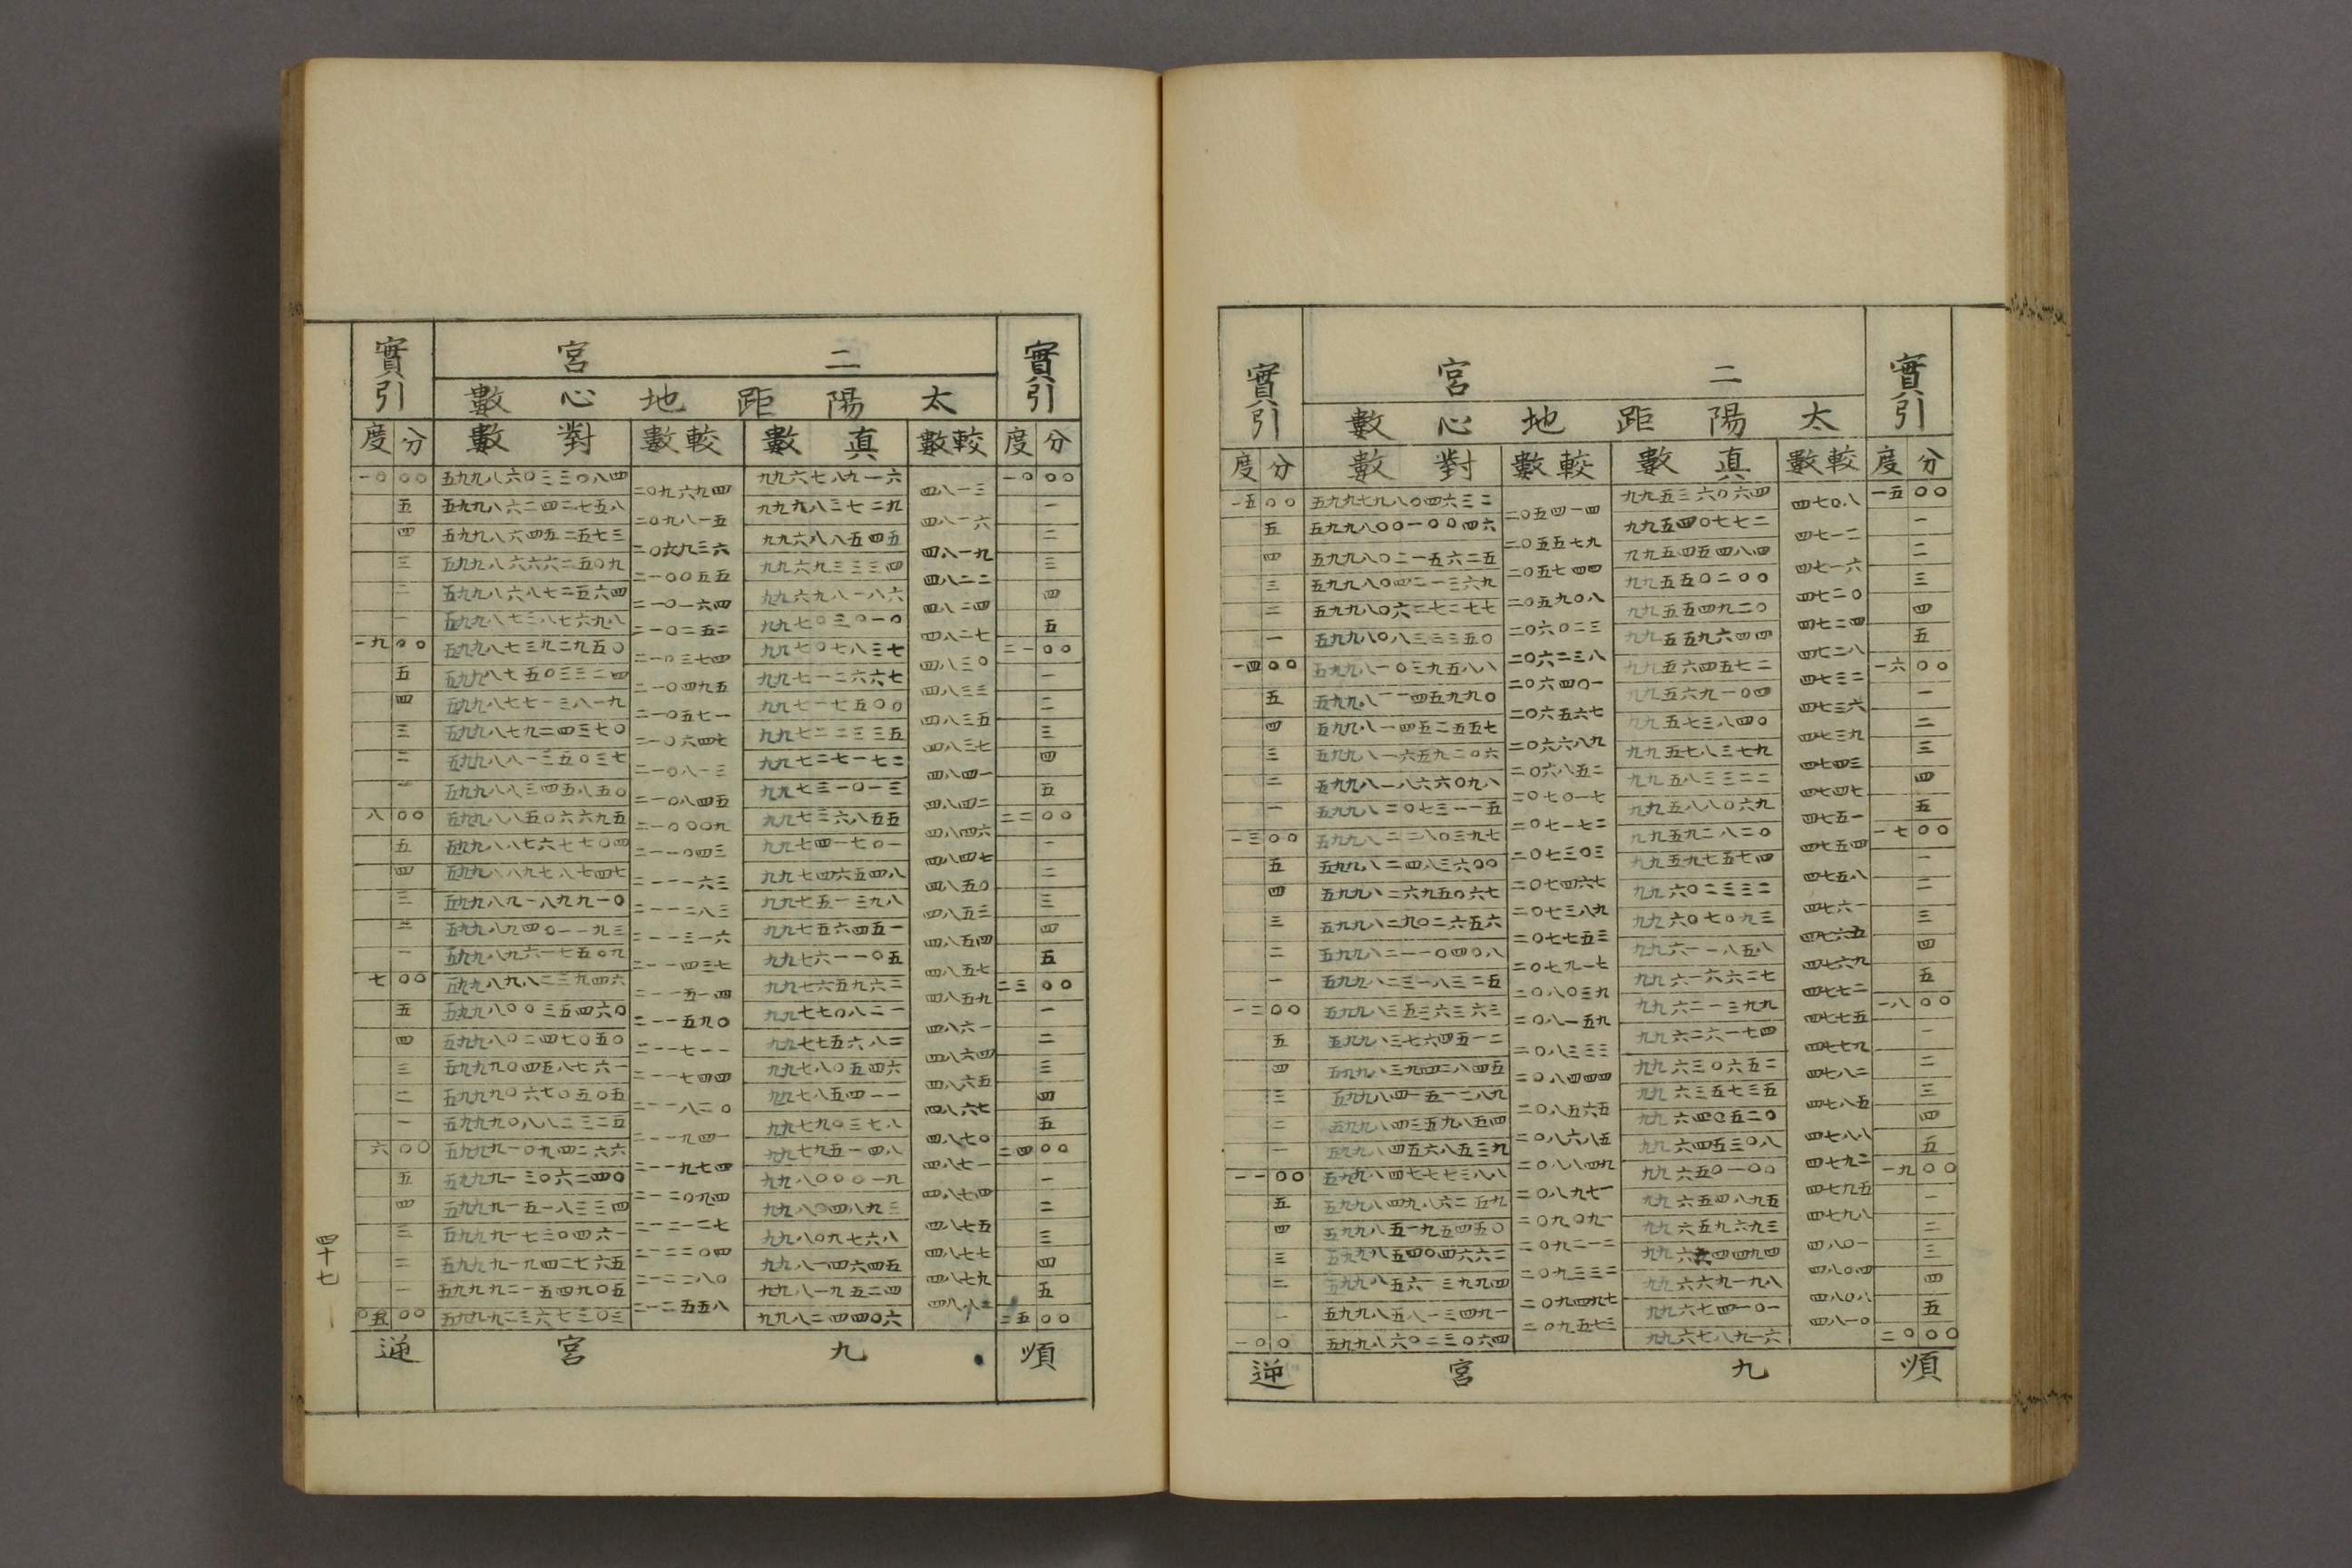 實引 二宮 實引
太陽距地心數
度 分 對數 較數 真數 較數 度 分
一五 〇〇 五九九七九八〇四六三二 九九五三六〇六四 一五 〇〇
二〇五四一四 四七〇八
五 五九九八〇〇一〇〇四六 九九五四〇七七二 一
二〇五五七九 四七一二
四 五九九八〇二一五六二五 九九五四五四八四 二
二〇五七四四 四七一六
三 五九九八〇四二一三六九 九九五五〇二〇〇 三
二〇五九〇八 四七二〇
二 五九九八〇六二七二七七 九九五五四九二〇 四
二〇六〇二三 四七二四
一 五九九八〇八三三三五〇 九九五五九六四四 五
二〇六二三八 四七二八
一四 〇〇 五九九八一〇三九五八八 九九五六四五七二 一六 〇〇
二〇六四〇一 四七三二
五 五九九八一一四五九九〇 九九五六九一〇四 一
二〇六五六七 四七三六
四 五九九八一四五二五五七 九九五七三八四〇 二
二〇六六八九 四七三九
三 五九九八一六五九二〇六 九九五七八三七九 三
二〇六八五二 四七四三
二 五九九八一八六六〇九八 九九五八三三二二 四
二〇七〇一七 四七四七
一 五九九八二〇七三一一五 九九五八八〇六九 五
二〇七一七二 四七五一
一三 〇〇 五九九八二二八〇三九七 九九五九二八二〇 一七 〇〇
二〇七三〇三 四七五四
五 五九九八二四八三六〇〇 九九五九七五七四 一
二〇七四六七 四七五八
四 五九九八二六九五〇六七 九九六〇二三三二 二
二〇七三八九 四七六一
三 五九九八二九〇二六五六 九九六〇七〇九三 三
二〇七七五三 四七六五
二 五九九八二一一〇四〇八 九九六一一八五八 四
二〇七九一七 四七六九
一 五九九八二三一八三二五 九九六一六六二七 五
二〇八〇三九 四七七二
一二 〇〇 五九九八三五三六三六三 九九六二一三九九 一八 〇〇
二〇八一五九 四七七五
五 五九九八三七六四五一二 九九六二六一七四 一
二〇八三三三 四七七九
四 五九九八三九四二八四五 九九六三〇六五二 二
二〇八四四四 四七八二
三 五九九八四一五一二八九 九九六三五七三五 三
二〇八五六五 四七八五
二 五九九八四三五九八五四 九九六四〇五二〇 四
二〇八六八五 四七八八
一 五九九八四五六八五三九 九九六四五三〇八 五
二〇八八四九 四七九二
一一 〇〇 五九九八四七七七三八八 九九六五〇一〇〇 一九 〇〇
二〇八九七一 四七九五
五 五九九八四九八六二五九 九九六五四八九五 一
二〇九〇九一 四七九八
四 五九九八五一九五四五〇 九九六五九六九三 二
二〇九二一二 四八〇一
三 五九九八五四〇四六六二 九九六四四九四 三
二〇九三三二 四八〇四
二 五九九八五六一三九九四 九九六六九一九八 四
二〇九四九七 四八〇八
一 五九九八五八一三四九一 九九六七四一〇一 五
二〇九五七三 四八一〇
一〇 〇 五九九八六〇二三〇六四 九九六七八九一六 二〇 〇〇
逆 九宮 順
實引 二宮 實引
太陽距地心數
度 分 對數 較數 真數 較數 度 分
一〇 〇〇 五九九八六〇三三〇八四 九九六七八九一六 一〇 〇〇
二〇九六九四 四八一三
五 五九九八六二四二七五八 九九九八三七二九 一
二〇九八一五 四八一六
四 五九九八六四五二五七三 九九六八八五四五 二
二〇六九三六 四八一九
三 五九九八六六六二五〇九 九九六九三三三四 三
二一〇〇五五 四八二二
二 五九九八六八七二五六四 九九六九八一八六 四
二一〇一六四 四八二四
一 五九九八七三八七六九八 九九七〇三〇一〇 五
二一〇二五二 四八二七
一九 〇〇 五九九八七三九二九五〇 九九七〇七八三七 二一 〇〇
二一〇三七四 四八三〇
五 五九九八七五〇三三二四 九九七一二六六七 一
二一〇四九五 四八三三
四 五九九八七七一三八一九 九九七一七五〇〇 二
二一〇五七一 四八三五
三 五九九八七九二四三七〇 九九七二二三三五 三
二一〇六四七 四八三七
二 五九九八八一三五〇三七 九九七二七一七二 四
二一〇八一三 四八四一
一 五九九八八三四五八五〇 九九七三一〇一三 五
二一〇八四五 四八四二
八 〇〇 五九九八八五〇六六九五 九九七三六八五五 二二 〇〇
二一〇〇〇九 四八四六
五 五九九八八七六七七〇四 九九七四一七〇一 一
二一一〇四三 四八四七
四 五九九八八九七八七四七 九九七四六五四八 二
二一一一六三 四八五〇
三 五九九八九一八九九一〇 九九七五一三九八 三
二一一二八三 四八五三
二 五九九八九四〇一一九三 九九七五六四五一 四
二一一三一六 四八五四
一 五九九八九六一七五〇九 九九七六一一〇五 五
二一一四三七 四八五七
七 〇〇 五九九八九八二三九四六 九九七六五九六二 二三 〇〇
二一一五一四 四八五九
五 五九九八〇〇三五四六〇 九九七七〇八二一 一
二一一五九〇 四八六一
四 五九九八〇二四七〇五〇 九九七七五六八二 二
二一一七一一 四八六四
三 五九九九〇四五八七六一 九九七八〇五四六 三
二一一七四四 四八六五
二 五九九九〇六七〇五〇五 九九七八五四一一 四
二一一八二〇 四八六七
一 五九九九〇八八二三二五 九九七九〇三七八 五
二一一九四一 四八七〇
六 〇〇 五九九九一〇九四二六六 九九七九五一四八 二四 〇〇
二一一九七四 四八七一
五 五九九九一三〇六二四〇 九九八〇〇〇一九 一
二一二〇九四 四八七四
四 五九九九一五一八三三四 九九八〇四八九三 二
二一二一二七 四八七五
三 五九九九一七三〇四六一 九九八〇九七六八 三
二一二二〇四 四八七七
二 五九九九一九四二七六五 九九八一四六四五 四
二一二二八〇 四八七九
一 五九九九二一五四九〇五 九九八一九五二四 五
二一二五五八 四八八二
〇五 〇〇 五九九九二三六七三〇三 九九八二四四〇六 二五 〇〇
逆 九宮 順
四十七